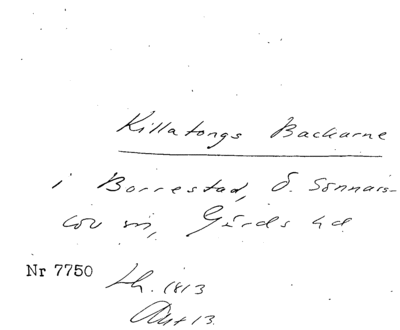 Killatongs Backarne
i Borrestad, Ö. Sönnars-
löv sn, Gärds hd
Nr 7750
lh. 1813
13